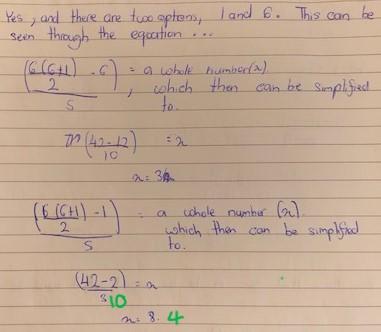 Yes, and there are two options, 1 and 6. This can be
seen through the equation ...
(6(6+1)/2 - 6)/5 = a whole number (x).
, which then can be simplified
to.
(42-12)/10 = x
x = 3
(6(6+1)/2 - 1)/5 = a whole number (x).
which then can be simplified
to.
(42-2)/10 = x
x = 8. 4